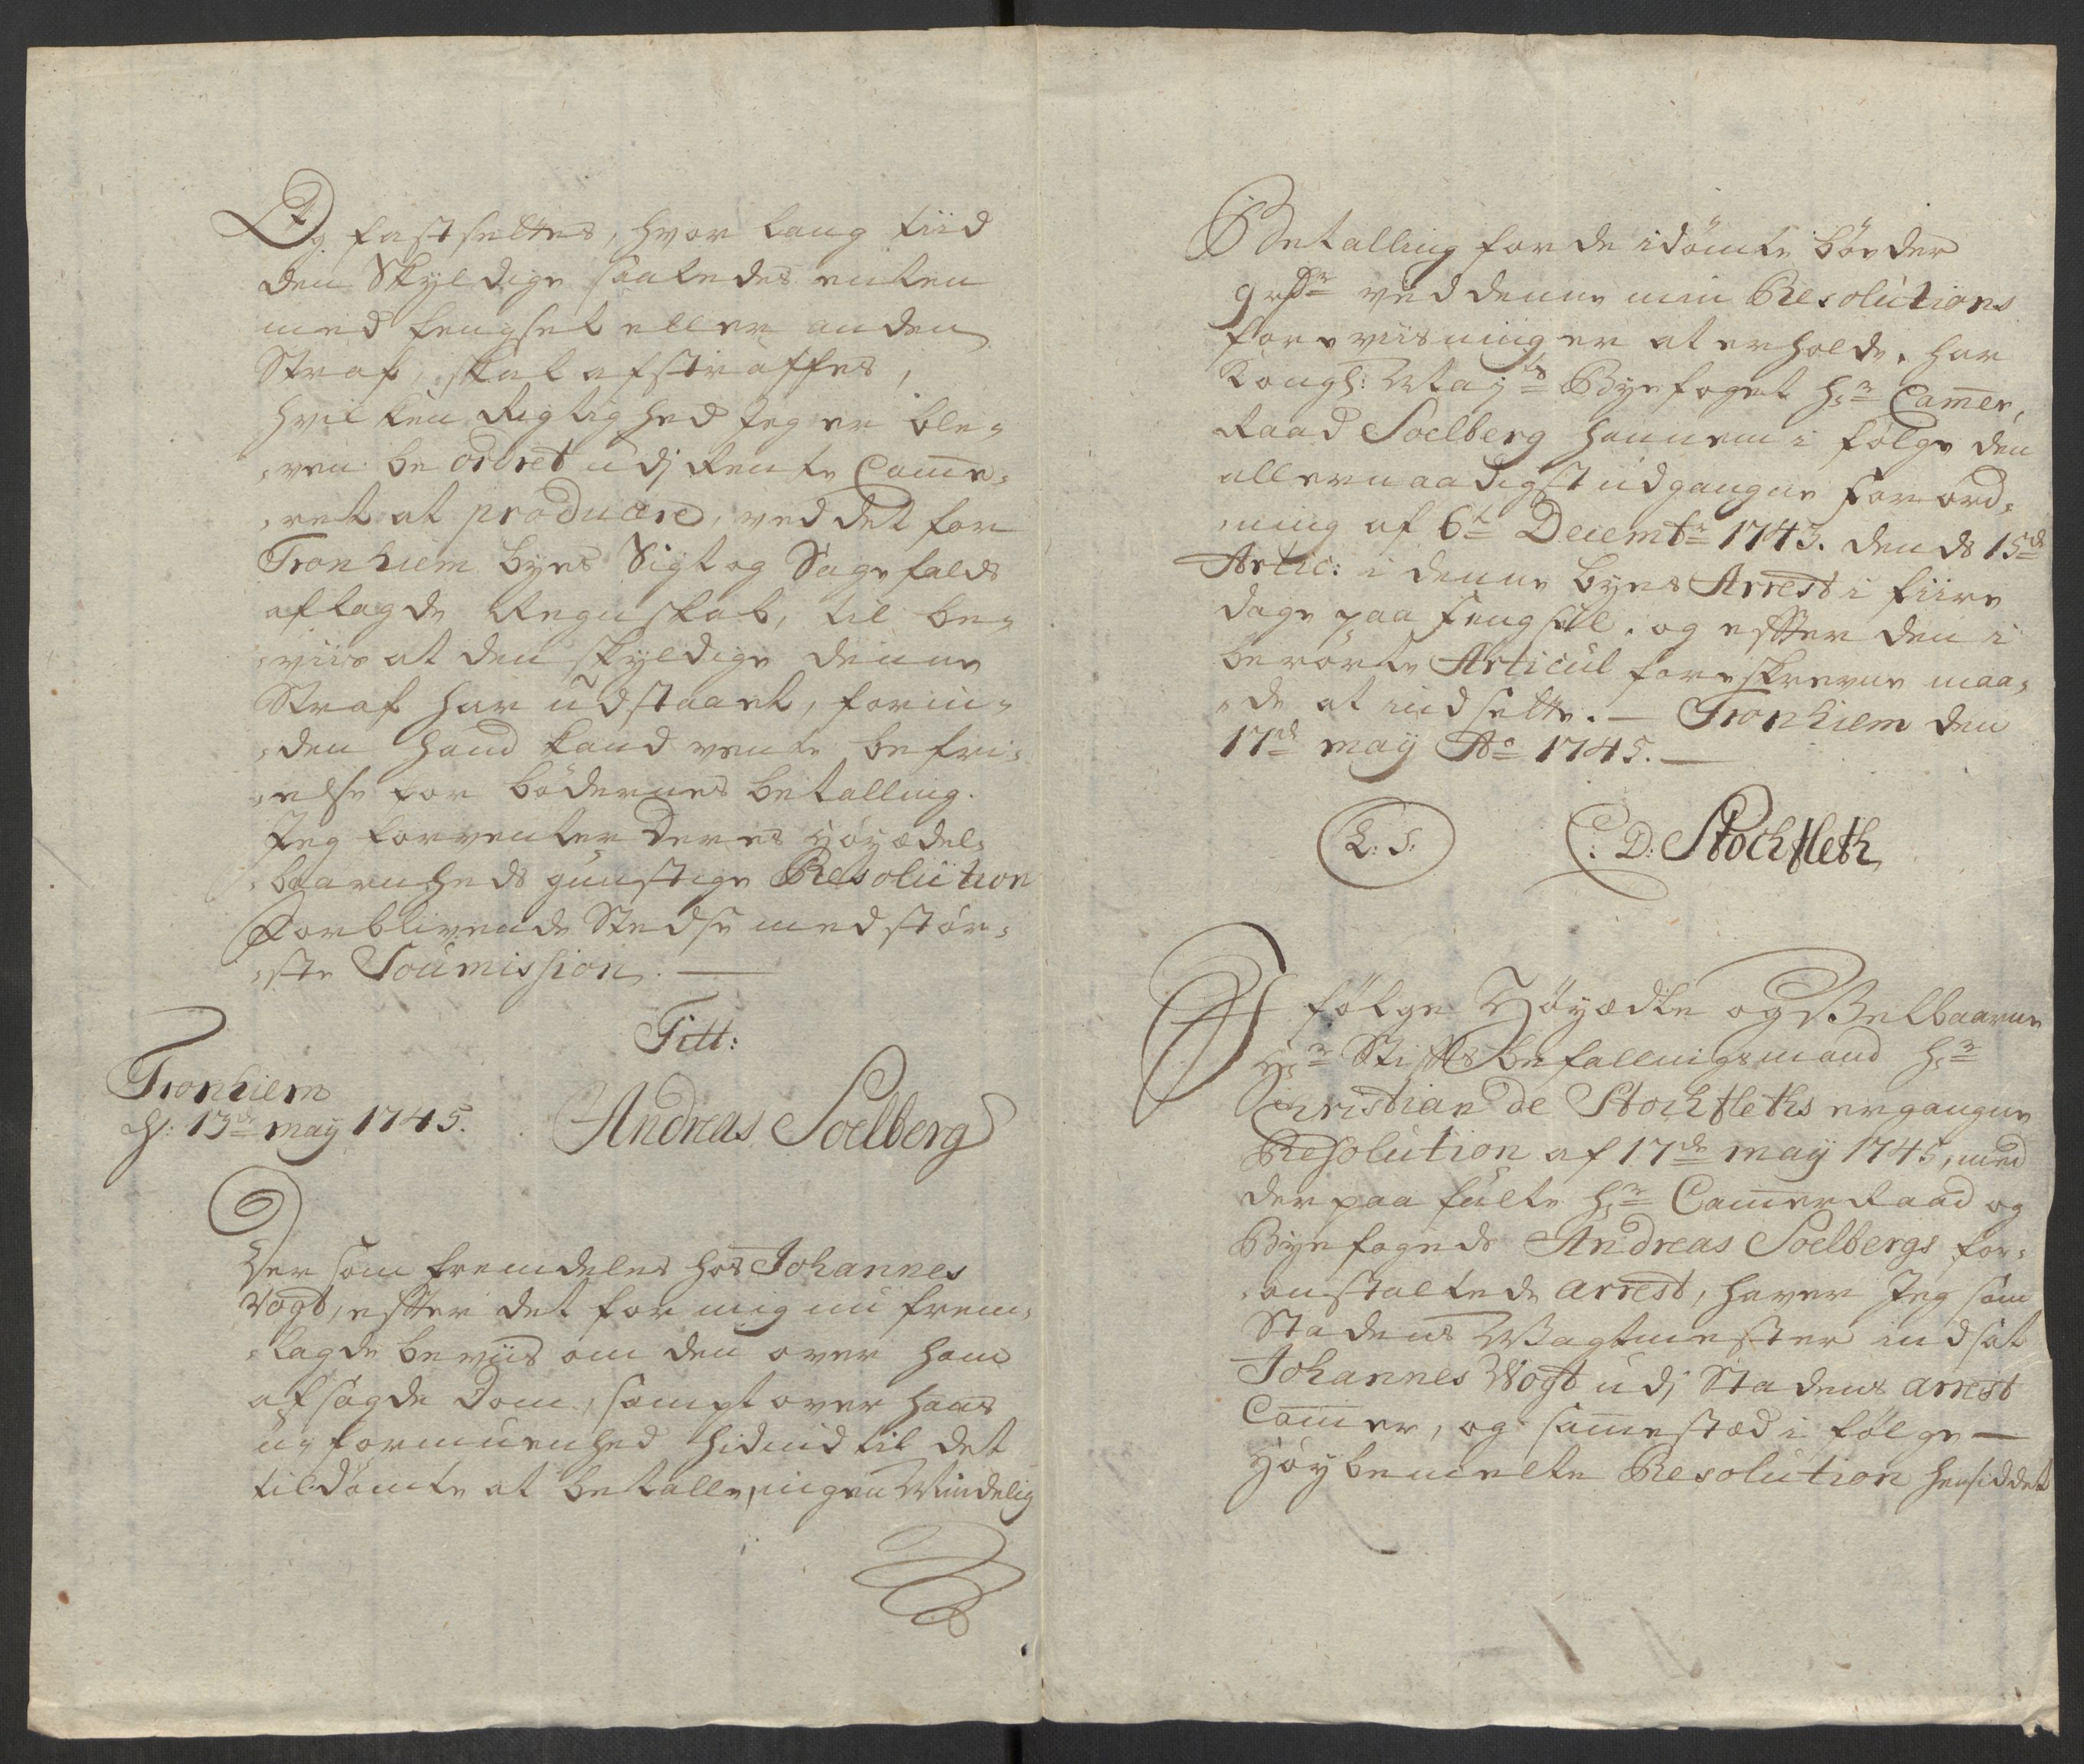 Og fastsettes, hvor lang tiid
den Skyldige saaledes enten
med fengsel eller anden
Straf, skal afstraffes,
hvilken Rigtighed Jeg er ble-
-ven beordret udj Rente Came-
-ret at producere, ved det for
Tronhiem byes Sigt og Sagefalds
aflagde Regnskab, til be-
-viis at den skyldige denne
Straf har udstaaet, forin-
-den hand kand vente befri-
-else for bödernes betalling.
Jeg forventer Deres Höyædel-
-baarenheds gunstige Resolution
Forblivende Stedse med stör-
-ste Soumission. —
Titt:
Tronhiem
d: 13de may 1745.
Andreas Soelberg
Der som fremdeles hos Johannes
Vogt, efter det for mig nu frem-
-lagde beviis om den over ham
afsagde Dom, sampt over hans
uformuenhed hidind til det
tildömte at betalle, ingen Mindelig
Betalling for de idömte böder
9 rdr ved denne min Resolutions
foreviisning er at erholde, har
Kongl: Mayts Byefoget Hr Camer-
Raad Soelberg hannem i fölge den
allernaadigst udgangne Forord-
-ning af 6te Decembr 1743. dends 15de
Artic: i denne byes Arrest i fiire
dage paa fengsell, og effter den i
berörte Articul foreskrevne maa-
-de at indsette. — Tronhiem den
17de may Ao 1745. —
L: S:
C: D: Stochfleth
I fölge Höyædle og Velbaarne
Hr Stiftsbefallingsmand Hr
Christian de Stochfleths ergangne
Resolution af 17de may 1745, med
der paa fulte Hr CamerRaad og
Byefogeds Andreas Soelbergs for-
-anstaltede arrest, haver Jeg som
Stadens Vagtmester indsat
Johannes Vogt udj Stadens arrest
Camer, og samestæd i fölge —
Höybemelte Resolution hensiddet